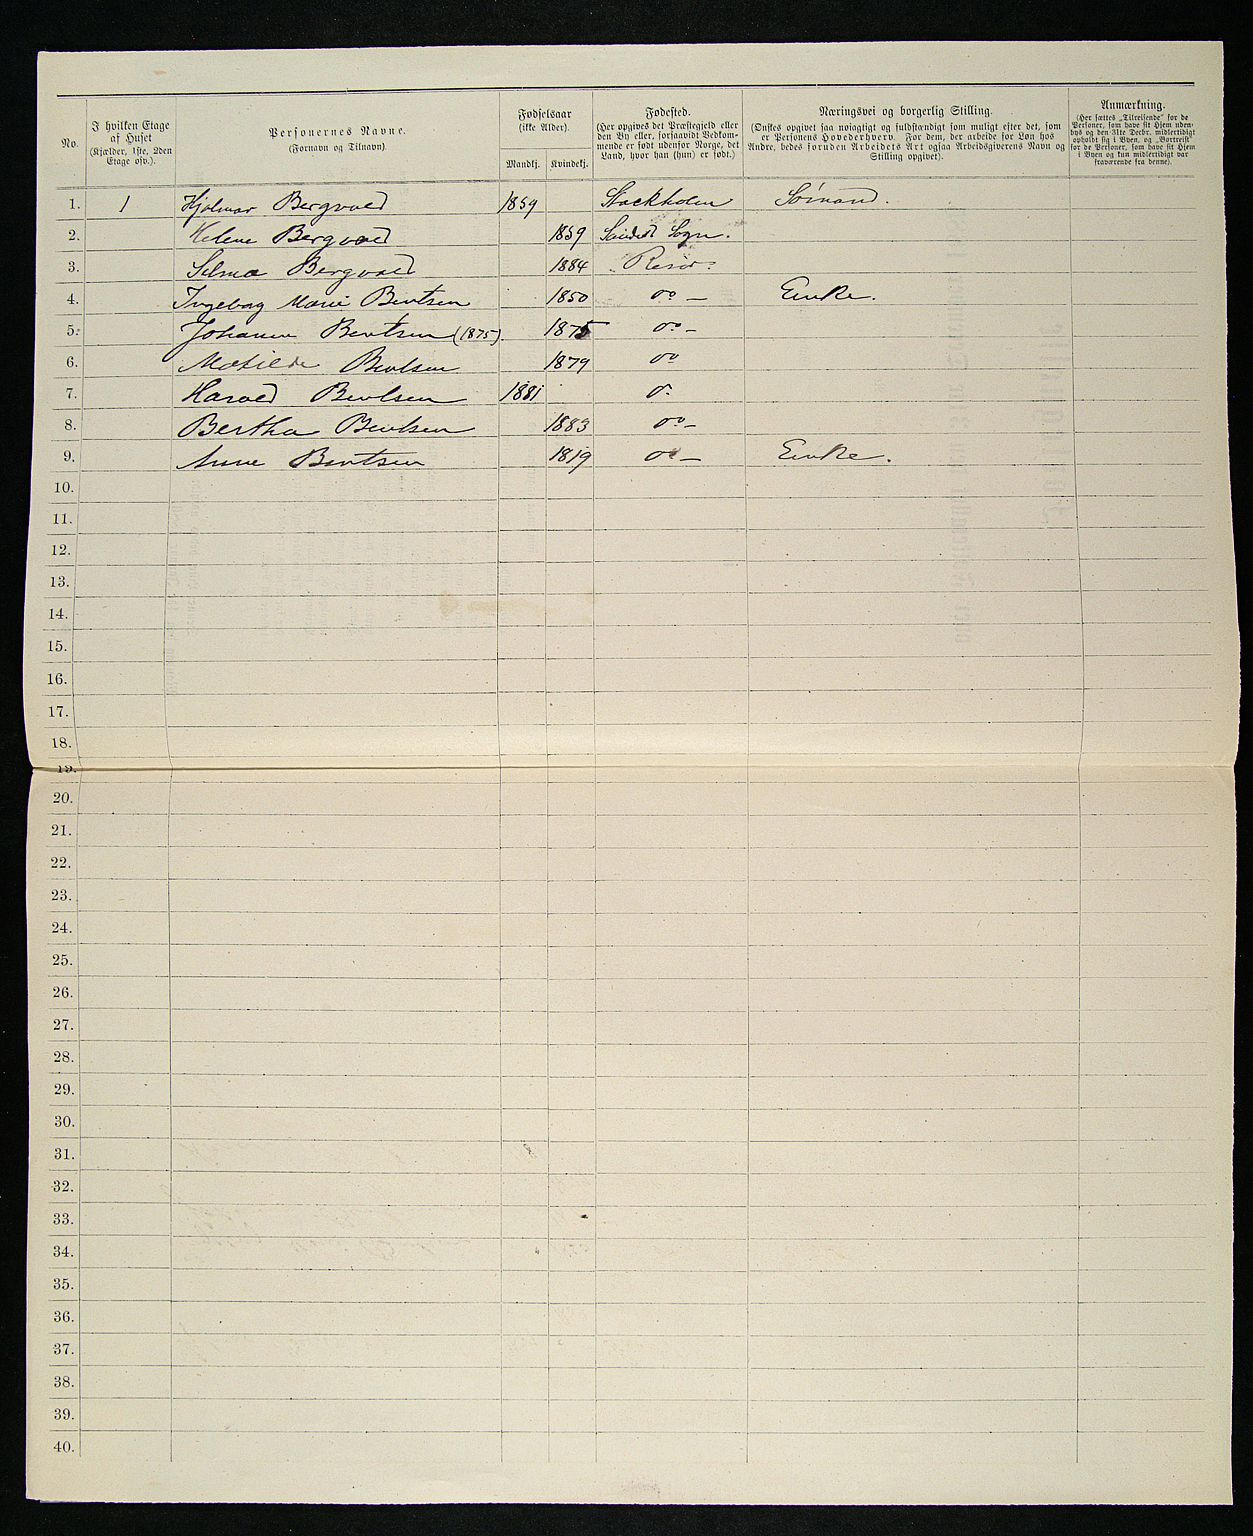 No.
I hvilken Etage af Huset (Kjælder, 1ste, 2den Etage osv.).
Personernes Navne. (Fornavn og Tilnavn).
Fødselsaar (ikke Alder).
Mandkj. Kvindekj.
Fødested. (Her opgives det Præstegjeld eller den By eller, forsaavidt Vedkommende er født udenfor Norge, det Land, hvor han (hun) er født.)
Næringsvei og borgerlig Stilling. (Ønskes opgivet saa nøiagtigt og fuldstændigt som muligt efter det, som er Personens Hovederhverv. For dem, der arbeide for Løn hos Andre, bedes foruden Arbeidets Art ogsaa Arbeidsgiverens Navn og Stilling opgivet).
Anmærkning. (Her sættes „Tilreisende" for de Personer, som have sit Hjem udenbys og den 31te Decbr. midlertidigt opholdt sig i Byen, og „Bortreist" for de Personer, som have sit Hjem i Byen og kun midlertidigt var fraværende fra denne).
1. 1 Hjalmar Bergvald 1859 Stockholm Sømand.
2. Helene Bergvald 1859 Sogn.
3. Selma Bergvald 1884 Risør.
4. Ingeborg Marie Bentsen 1850 do — Enke.
5. Johanne Bentsen (1875). 1875 do -
6. Matilde Bentsen 1879 do
7. Harald Bentsen 1881 do
8. Bertha Bentsen 1883 do -
9. Anne Bentsen 1819 do — Enke.
10.
11.
12.
13.
14.
15.
16.
17.
18.
19.
20.
21.
22.
23.
24.
25.
26.
27.
28.
29.
30.
31.
32.
33.
34.
35.
36.
37.
38.
39.
40.